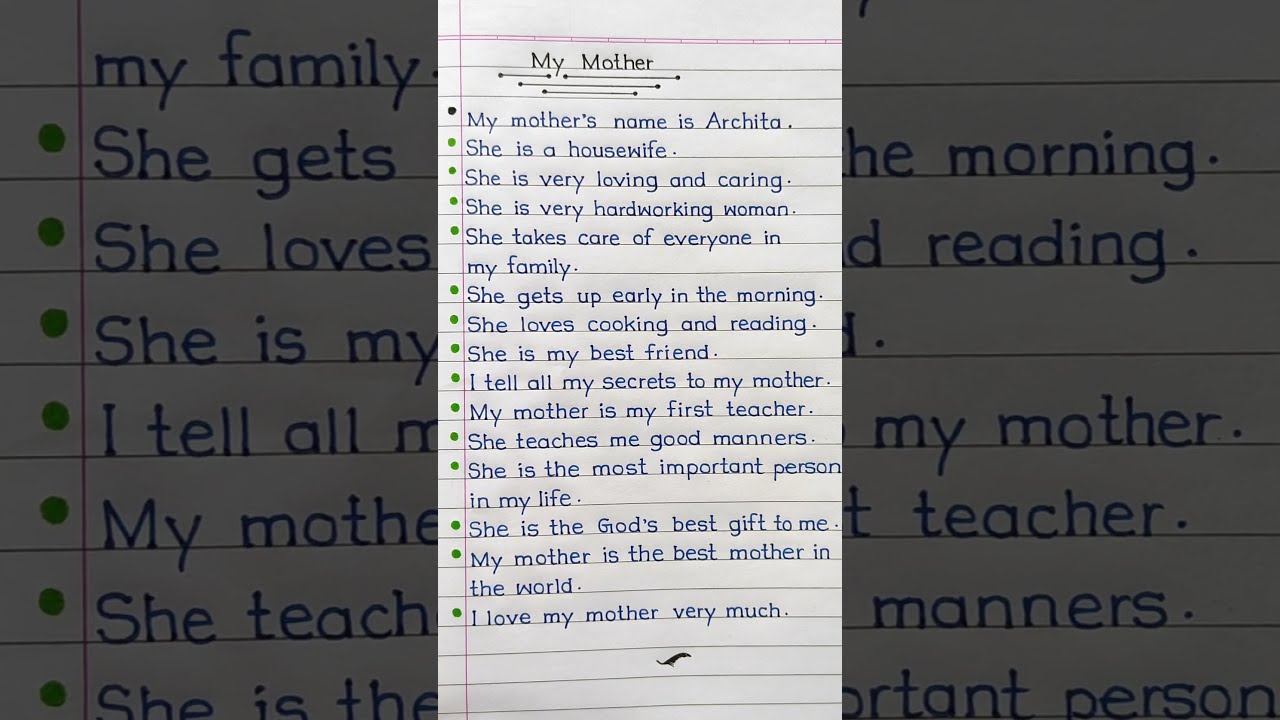 My Mother
My mother's name is Archita.
She is a housewife.
She is very loving and caring.
She is very hardworking woman.
She takes care of everyone in
my family.
She gets up early in the morning.
She loves cooking and reading.
She is my best friend.
I tell all my secrets to my mother.
My mother is my first teacher.
She teaches me good manners.
She is the most important person
in my life.
She is the God's best gift to me.
My mother is the best mother in
the world.
I love my mother very much.